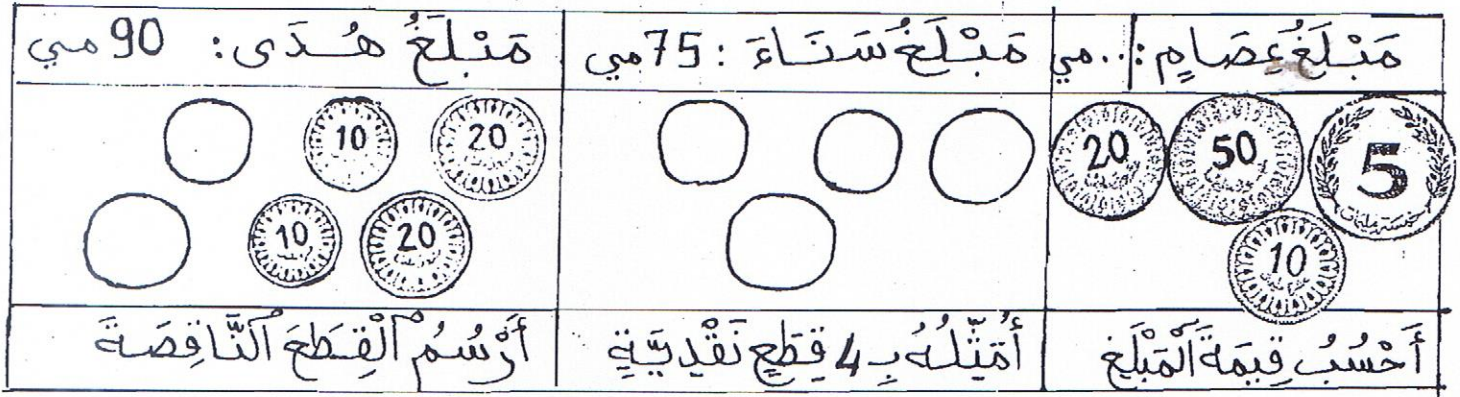 مَبْلَغُ عِصَامٍ: .. مي
مَبْلَغُ سَنَاءَ: 75 مي
مَبْلَغُ هُدَى: 90 مي
20 50 5
10
10 20
10 20
أَحْسُبُ قِيمَةَ الْمَبْلَغِ
أُمَثِّلُهُ بِـ 4 قِطَعٍ نَقْدِيَّةٍ
أَرْسُمُ الْقِطَعَ النَّاقِصَةَ